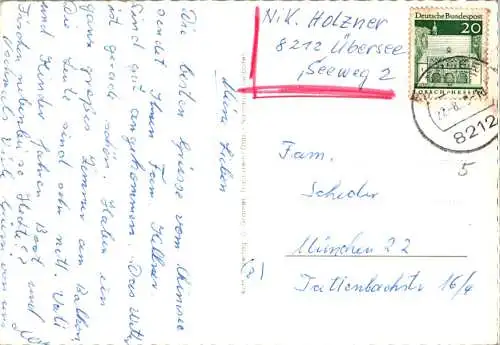 Meine Lieben
Die besten Grüsse vom Chimsee
sendet Ihnen Fam. Hellner.
sind gut angekommen. Das Wetter
ist gerade schön. Haben ein
ganz großes Zimmer am Balkon
Die Leute sind sehr nett. Vati
und Kinder fahren Boot und
Fischen nebenbei so Hechte??
Nochmals viele von uns
Nik. Holzner
8212 Übersee
Seeweg 2
Deutsche Bundespost
20
LORSCH/HESSEN
8212
5
Fam.
Scheder
München 22
Tattenbachstr 16/4